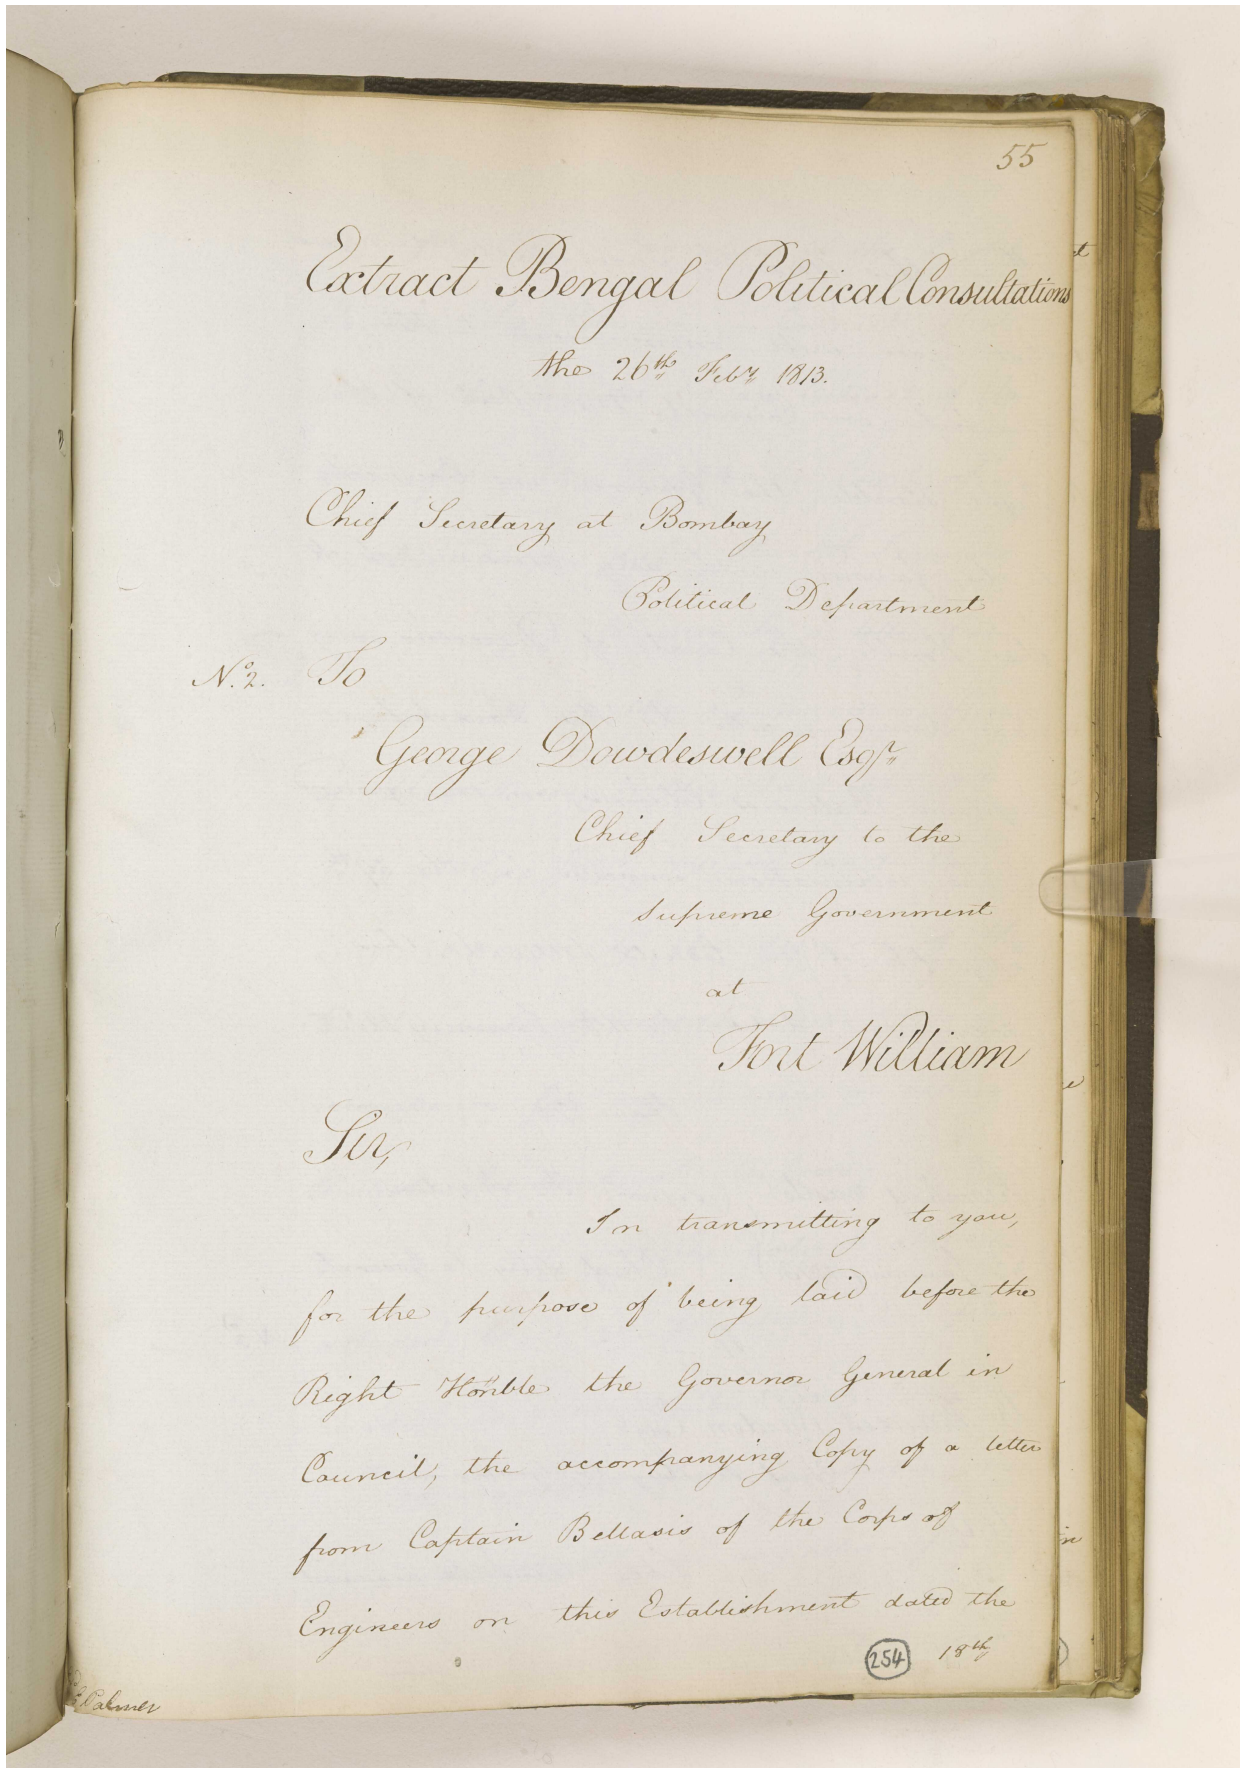 55
Extract Bengal Political Consultations
the 26th Feby 1813.
Chief Secretary at Bombay
Political Department
No. 2. To
George Dowdeswell Esqr
Chief Secretary to the
Supreme Government
at
Fort William
Sir,
In transmitting to you,
for the purpose of being laid before the
Right Honble the Governor General in
Council, the accompanying Copy of a letter
from Captain Bellasis of the Corps of
Engineers on this Establishment dated the
254 18th
Palmer